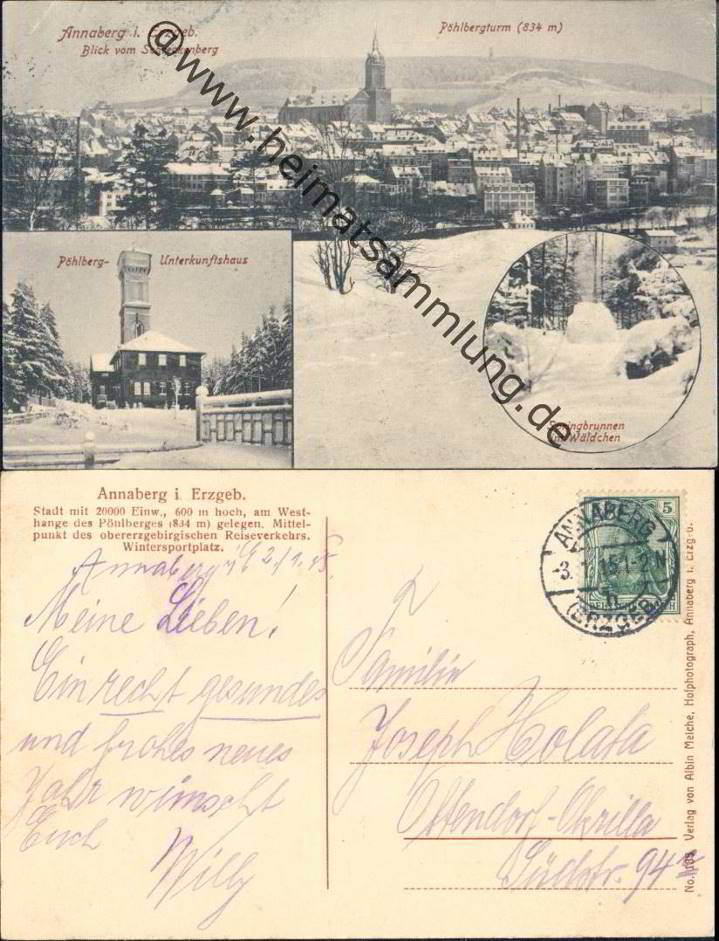 Annaberg i. Erzgeb.
Blick vom Schreckenberg
Pöhlbergturm (834 m)
@www.heimatsammlung.de
Pöhlberg- Unterkunftshaus
Springbrunnen
im Wäldchen
Annaberg i. Erzgeb.
Stadt mit 20000 Einw., 600 m hoch, am West-
hange des Pöhlberges (834 m) gelegen. Mittel-
punkt des obererzgebirgischen Reiseverkehrs.
Wintersportplatz.
Annaberg 2/1.15.
Meine Lieben!
Ein recht gesundes
und frohes neues
Jahr wünscht
Euch
Willy
5
ANNABERG
-3. 1. 15. 1-2 N
(ERZGEB.)
Familie
Joseph Holata
Ottendorf-Okrilla
Südstr. 94
Verlag von Albin Meiche, Hofphotograph, Annaberg i. Erzg-b.